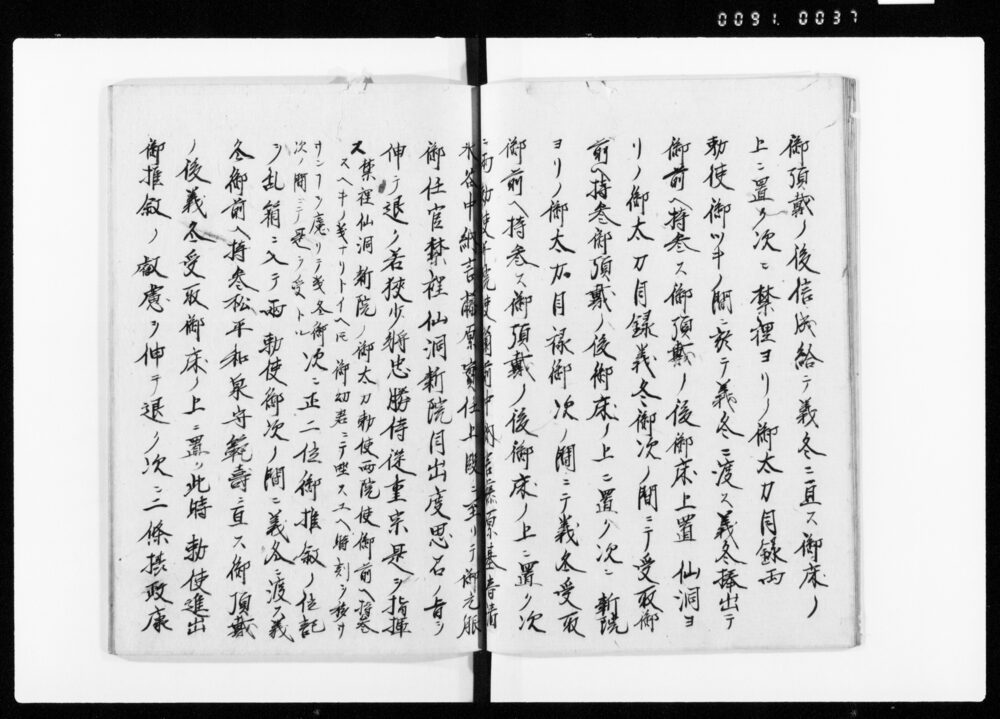 0091.0037
御頂戴ノ後信成給テ義冬ニ直ス御床ノ
上ニ置ク次ニ禁裡ヨリノ御太刀目録両
勅使御ツキノ間ニ於テ義冬ニ渡ス義冬捧出テ
御前ヘ持参ス御頂戴ノ後御床上置 仙洞ヨ
リノ御太刀目録義冬御次ノ間ニテ受取御
前ヘ持参御頂戴ノ後御床ノ上ニ置ク次ニ新院
ヨリノ御太刀目禄御次ノ間ニテ義冬受取
御前ヘ持参ス御頂戴ノ後御床ノ上ニ置ク次
ニ両勅使 院使 前中納言藤原基
中納言藤原實仕上段ニ至リテ御元服
御任官禁裡仙洞新院目出度思召ノ旨ヲ
伸テ退ク若狭少将忠勝侍従重宗是ヲ指揮
ス禁裡仙洞新院ノ御太刀勅使両院使御前ヘ持参
スヘキノ義ナリトイヘ𪜈 御幼君ニテ 時刻ヲ移サ
サランヲ慮リテ義冬御
次ノ間ニテ是ヲ受トル
次ニ正二位御推敘ノ位記
ヲ乱箱ニ入テ両勅使御次ノ間ニ義冬ニ渡ス義
冬御前ヘ持参松平和泉守乗壽ニ直ス御頂戴
ノ後義冬受取御床ノ上ニ置ク此時 勅使進出
御推敘ノ叡慮ヲ伸テ退ク次ニ二條摂政康